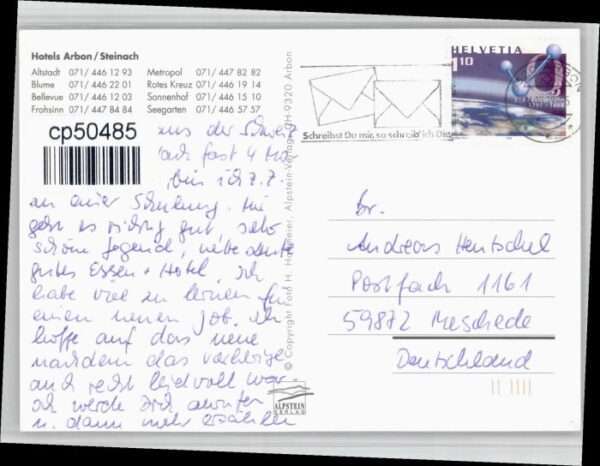 Hotels Arbon/Steinach
Altstadt 071/446 12 93 Metropol 071/447 82 82
Blume 071/446 22 01 Rotes Kreuz 071/446 19 14
Bellevue 071/446 12 03 Sonnenhof 071/446 15 10
Frohsinn 071/447 84 84 Seegarten 071/446 57 57
cp50485
aus der Schweiz
fast 4
bin ich z.Z.
an einer Schulung. Mir
geht es richtig gut, sehr
schöne Gegend, nette Leute
gutes Essen + Hotel, ich
habe viel zu lernen für
einen neuen Job. Ich
hoffe auf das neue
nachdem das vorherige
auch recht leidvoll war
Ich werde Dich anrufen
u. dann mehr erzählen
© Copyright Foto H. Alpstein-Verlag, CH-9320 Arbon
ALPSTEIN
VERLAG
Schreibst Du mir, so schreib' ich Dir
HELVETIA
110
Hr.
Andreas Hentschel
Postfach 1161
59872 Meschede
Deutschland